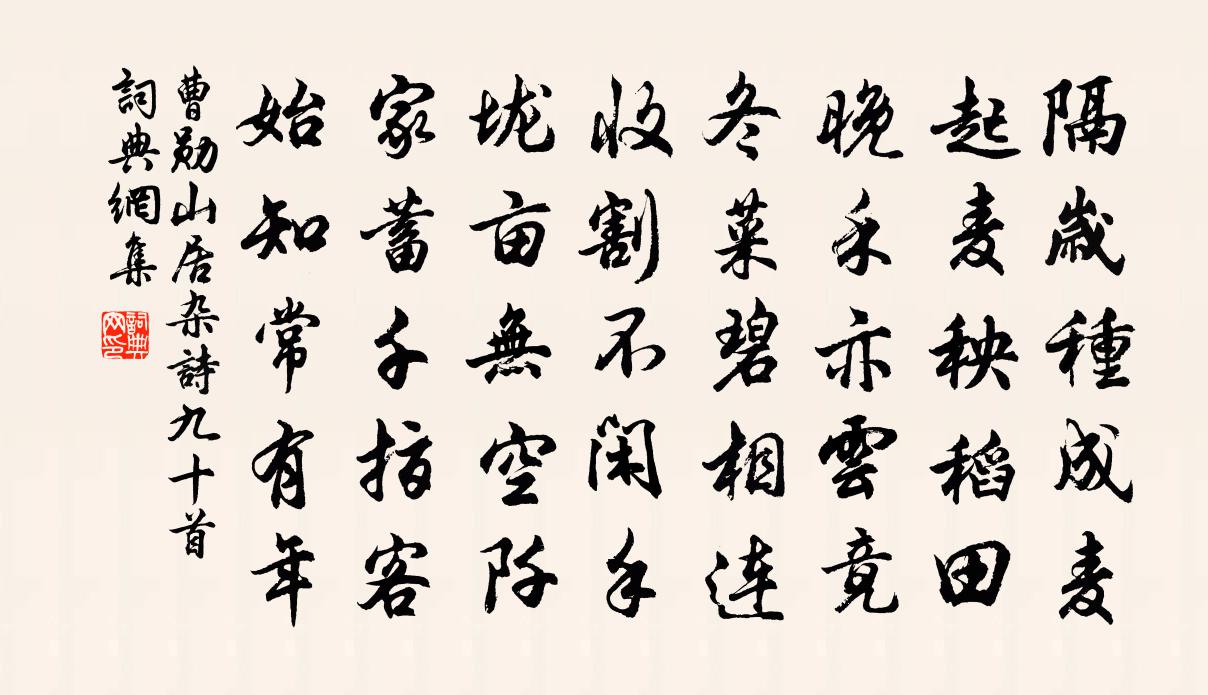 隔歲種成麦
起麦秧稻田
晚禾亦雲竟
冬菜碧相連
收割不閑手
垅亩無空阡
家蓄千指客
始知常有年
曹勛山居杂詩九十首
詞典網集
詞典网印